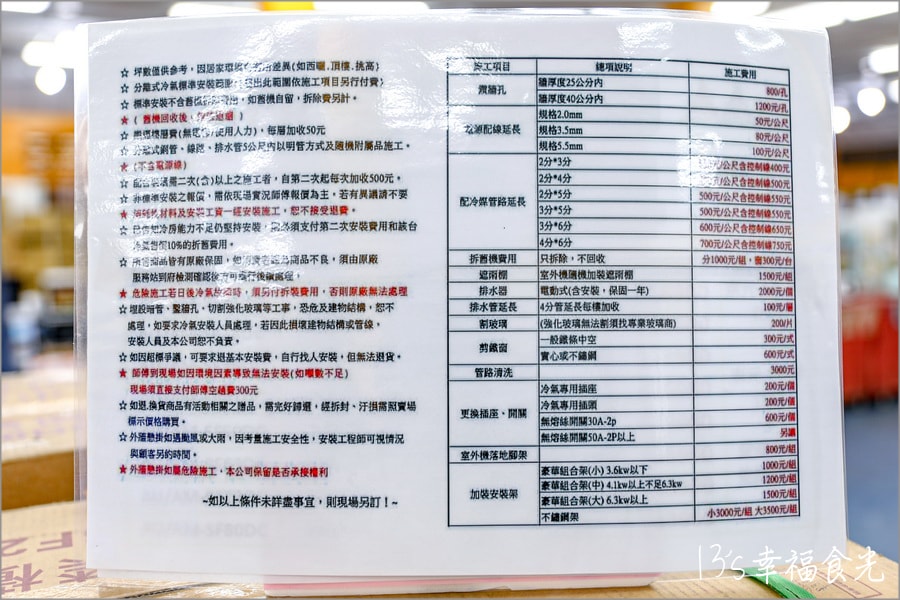 ☆ 坪數僅供參考，因居家環境
差異(如西曬.頂樓.挑高)
☆ 分離式冷氣標準安裝範圍
出此範圍依施工項目另行付費)
☆ 標準安裝不含舊機拆
如舊機自留，拆除費另計。
★ ( 舊機回收後
)
☆ 搬運樓層費(無電
使用人力)，每層加收50元
☆ 分離式銅管、線路、排水管5公尺內以明管方式及隨機附屬品施工。
★ (不含電源線)
☆ 配合裝潢需二次(含)以上之施工者，自第二次起每次加收500元。
☆ 非標準安裝之報價，需依現場實況師傅報價為主。若有異議請不要
★
材料及安裝工資一經安裝施工，恕不接受退費。
☆ 已告知冷房能力不足仍堅持安裝，
必須支付第二次安裝費用和該台
冷氣售價10%的折舊費用。
☆ 所售商品皆有原廠保固，如
商品不良，須由原廠
服務站到府檢測確認後方可進行後續處理，
★ 危險施工若日後冷氣故障時，須另付拆裝費用，否則原廠無法處理
☆ 埋設暗管、鑿牆孔，切割強化玻璃等工事，恐危及建物結構，恕不
處理，如要求冷氣安裝人員處理，若因此損壞建物結構或管線，
安裝人員及本公司恕不負責。
☆ 如因超標爭議，可要求退基本安裝費，自行找人安裝，但無法退貨。
★ 師傅到現場如因環境因素導致無法安裝(如噸數不足)
現場須直接支付師傅空趟費300元
☆ 如退.換貨商品有活動相關之贈品，需完好歸還，經拆封、汙損需照賣場
標示價格購買。
☆ 外牆懸掛如遇颱風或大雨，因考量施工安全性，安裝工程師可視情況
與顧客另約時間。
★ 外牆懸掛如屬危險施工，本公司保留是否承接權利
~如以上條件未詳盡事宜，則現場另訂！~
施工項目 細項說明 施工費用
鑽牆孔 牆厚度25公分內 800/孔
牆厚度40公分內 1200元/孔
電源配線延長 規格2.0mm 50元/公尺
規格3.5mm 80元/公尺
規格5.5mm 100元/公尺
配冷媒管路延長 2分*3分
元/公尺含控制線400元
2分*4分
元/公尺含控制線500元
2分*5分 500元/公尺含控制線550元
3分*5分 500元/公尺含控制線550元
3分*6分 600元/公尺含控制線650元
4分*6分 700元/公尺含控制線750元
拆舊機費用 只拆除，不回收 分1000元/組，窗300元/台
遮雨棚 室外機隨機加裝遮雨棚 1500元/組
排水器 電動式(含安裝，保固一年) 2000元/個
排水管延長 4分管延長每樓加收 100元/層
割玻璃 (強化玻璃無法割須找專業玻璃商) 200/片
剪鐵窗 一般鐵條中空 300元/式
實心或不鏽鋼 600元/式
管路清洗 3000元
更換插座、開關 冷氣專用插座 200元/個
冷氣專用插頭 200元/個
無熔絲開關30A-2p 600元/個
無熔絲開關50A-2P以上 另議
室外機落地腳架 800元/組
加裝安裝架 豪華組合架(小) 3.6kw以下 1000元/組
豪華組合架(中) 4.1kw以上不足6.3kw 1200元/組
豪華組合架(大) 6.3kw以上 1500元/組
不鏽鋼架 小3000元/組 大3500元/組
13's幸福食光